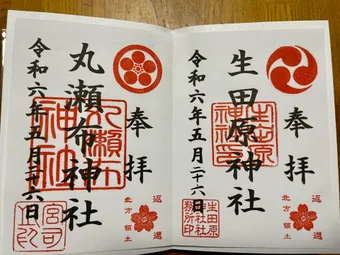 奉拝
生田原神社
令和六年五月二十六日
生田原神社印
生田原神社社務所印
北方領土
返還
奉拝
丸瀬布神社
令和六年五月二十六日
丸瀬布神社
宮司之印
北方領土
返還